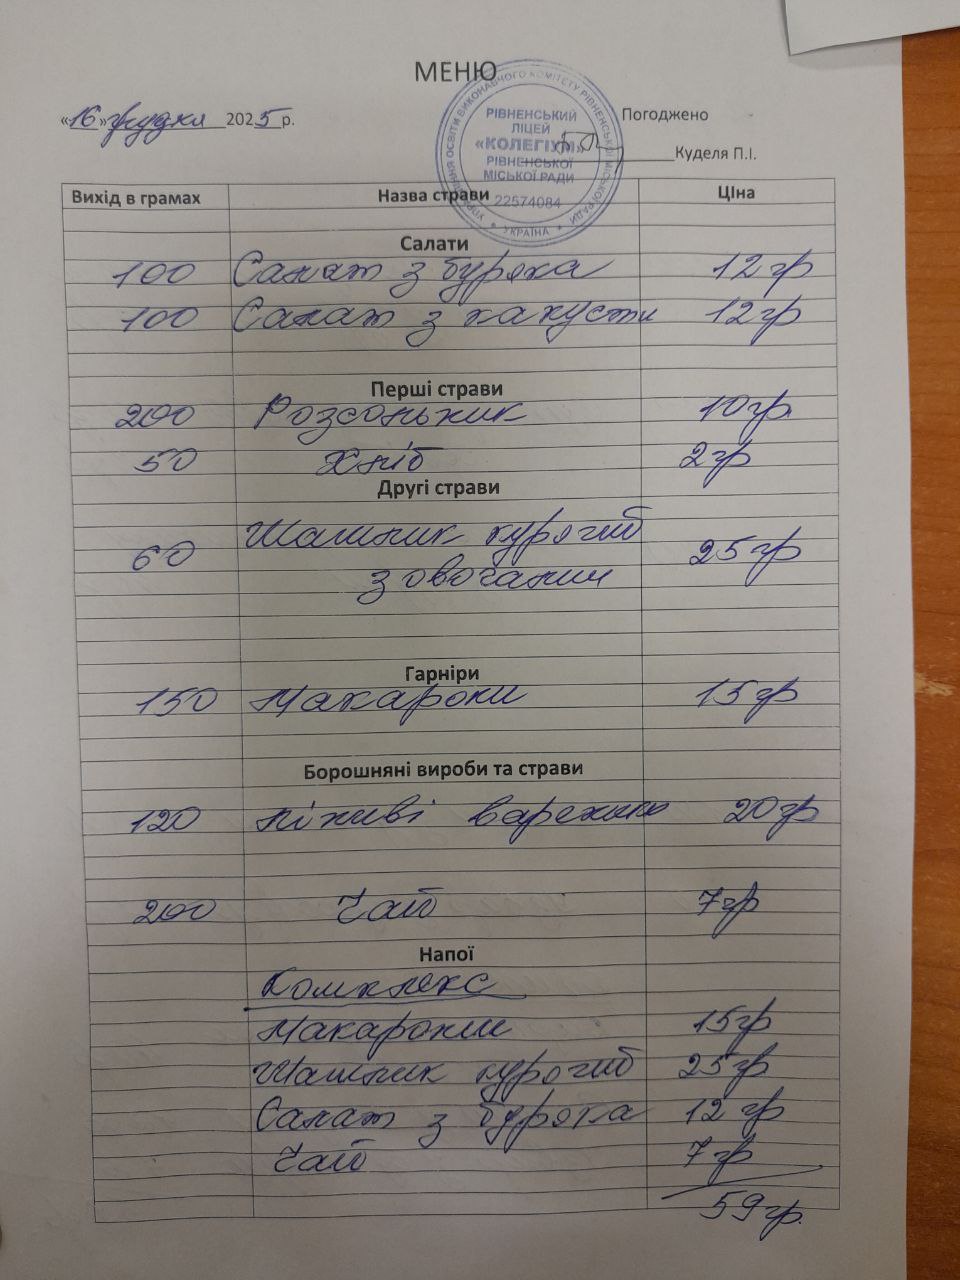 МЕНЮ
«16» грудня 2025 р.
Погоджено
Куделя П.І.
УПРАВЛІННЯ ОСВІТИ ВИКОНАВЧОГО КОМІТЕТУ РІВНЕНСЬКОЇ МІСЬКОЇ РАДИ * УКРАЇНА *
РІВНЕНСЬКИЙ
ЛІЦЕЙ
«КОЛЕГІУМ»
РІВНЕНСЬКОЇ
МІСЬКОЇ РАДИ
22574084
Вихід в грамах Назва страви Ціна
Салати
100 Салат з буряка 12 гр
100 Салат з капусти 12 гр
Перші страви
200 Розсольник 10 гр.
50 Хліб 2 гр
Другі страви
60 Шашлик курячий 25 гр
з овочами
Гарніри
150 Макарони 15 гр
Борошняні вироби та страви
120 ліниві вареники 20 гр
200 Чай 7 гр
Напої
Комплекс
Макарони 15 гр
Шашлик курячий 25 гр
Салат з буряка 12 гр
Чай 7 гр
59 гр.